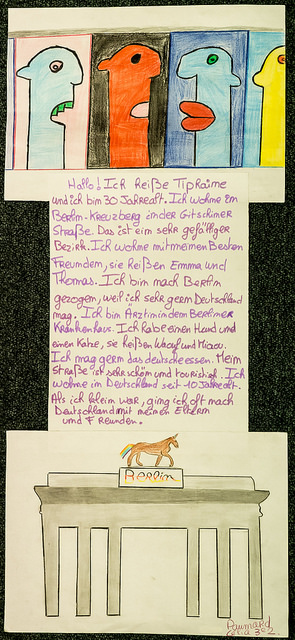 Hallo! Ich heiße Tiphaime
und ich bim 30 Jahrealt. Ich wohme im
Berlim-Kreuzberg inder Gitschimer
Straße. Das ist eim sehr gefälliger
Bezirk. Ich wohme mitmeimem Bestem
Freumdem, sie heißem Emma und
Thomas. Ich bim mach Berlim
gezogem, weil ich sehr germ Deutschland
mag. Ich bim Ärztim in dem Berlimer
Krankemhaus. Ich habe eimem Humd und
eimem Katze, sie heißem Waouf und Miaou.
Ich mag germ das deutsche essem. Meim
Straße ist sehr schöm und touristisch. Ich
wohme im Deutschland seit 10 Jahrealt.
Als ich kleim war, gimg ich oft mach
Deutschland mit meimem Elterm
und Freumdem.
Berlim